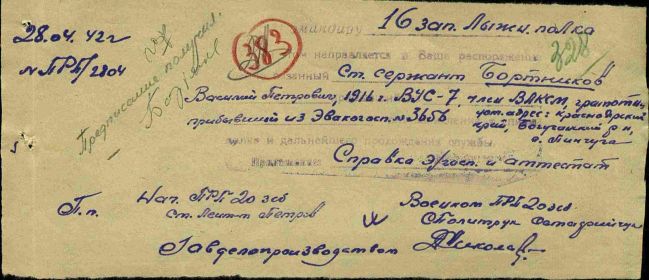 28.04.42г
№ ПРБ/2804
Предписание получил.
383
командиру 16 зап. Лыжн. полка
328
направляется в Ваше распоряжение
Ст. сержант Бортников
Василий Петрович, 1916 г. ВУС-7, член ВЛКСМ, грамотн.
прибывший из Эвакогосп. № 3656
дом. адрес: Красноярский край, Богучанский р-н, д. Пинчуга
и дальнейшего прохождения службы.
Приложение:
Справка э/госп. и аттестат
П.п.
Нач. ПРБ 20 зсб
Ст. Лейт-т Петров
Военком ПРБ 20 зсб
Политрук
Завделопроизводством